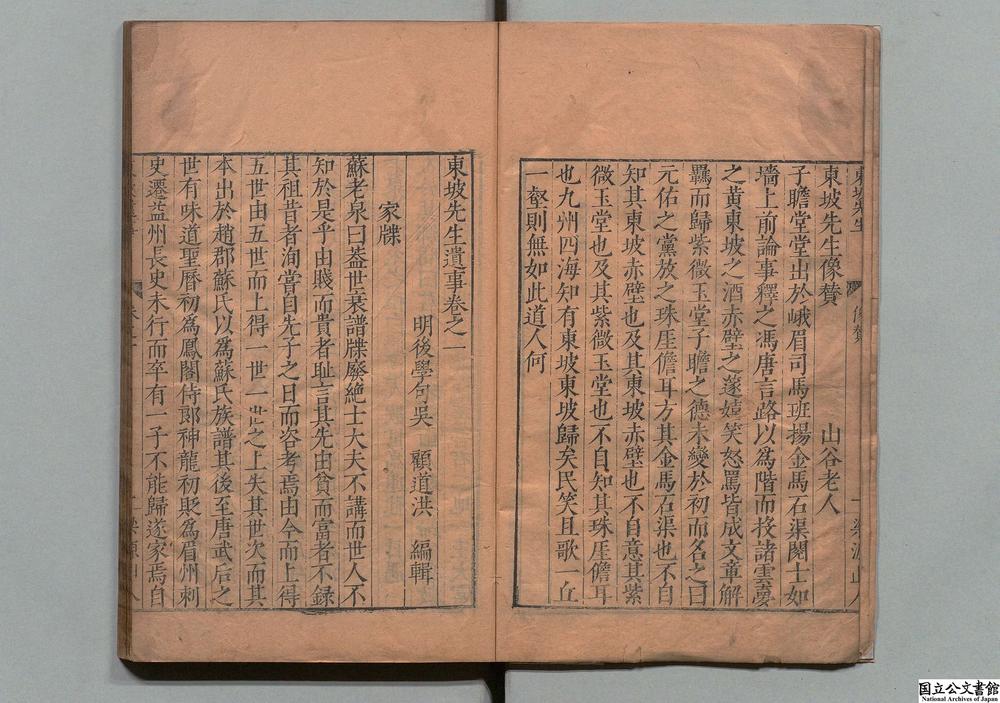 東坡先生像賛
山谷老人
子瞻堂堂出於峨眉司馬班揚金馬石渠閱士如
墻上前論事釋之馮唐言路以為階而投諸雲夢
之黃東坡之酒赤壁之遂嬉笑怒罵皆成文章解
羈而歸紫微玉堂子瞻之德未變於初而名之曰
元佑之黨放之珠厓儋耳方其金馬石渠也不自
知其東坡赤壁也及其東坡赤壁也不自意其紫
微玉堂也及其紫微玉堂也不自知其珠厓儋耳
也九州四海知有東坡東坡歸矣民笑且歌一丘
一壑則無如此道人何
東坡先生遺事卷之一
明後學句吳 顧道洪 編輯
家牒
蘇老泉曰葢世衰譜牒廢絶士大夫不講而世人不
知於是乎由賤而貴者耻言其先由貧而富者不錄
其祖昔者洵嘗自先子之日而咨考焉由今而上得
五世由五世而上得一世一世之上失其世次而其
本出於趙郡蘇氏以為蘇氏族譜其後至唐武后之
世有味道聖曆初為鳳閣侍郎神龍初貶為眉州刺
史遷益州長史未行而卒有一子不能歸遂家焉自
国立公文書館
National Archives of Japan